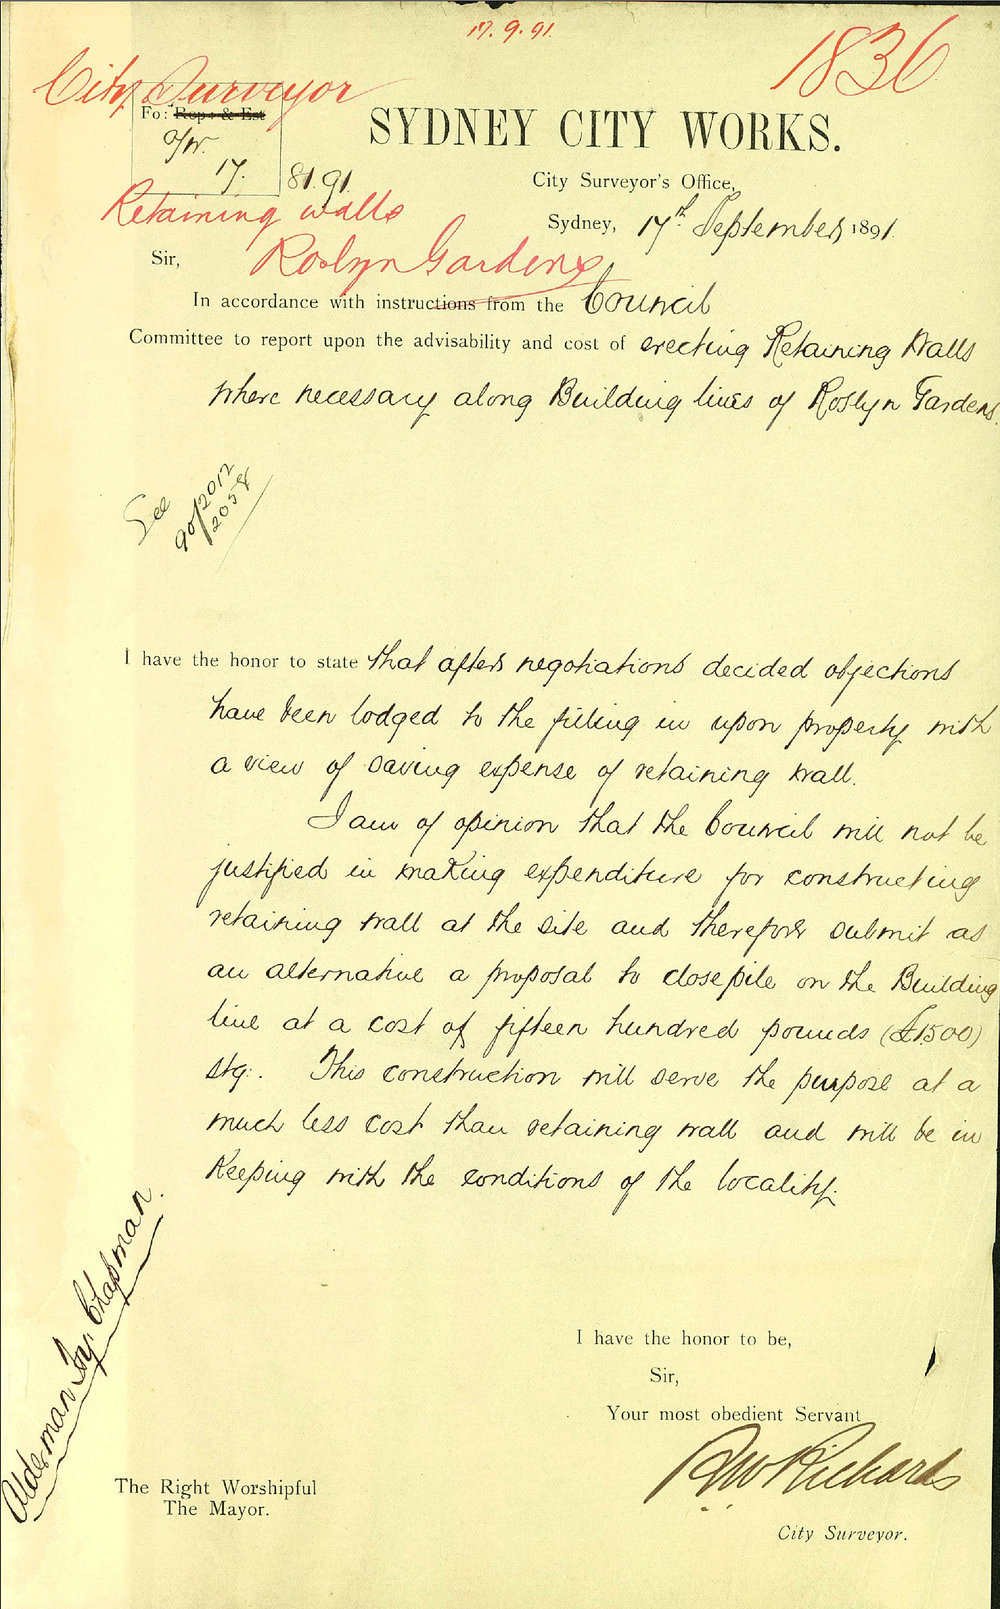 17.9.91.
1836
City Surveyor
Fo: Rep: & Est
17. 81.91.
SYDNEY CITY WORKS.
City Surveyor's Office,
Retaining walls
Sydney, 17th September 1891.
Sir,
Roslyn Gardens
In accordance with instructions from the Council
Committee to report upon the advisability and cost of erecting Retaining Walls
where necessary along Building lines of Roslyn Gardens.
See
90/2012
2058
I have the honor to state that after negotiations decided objections
have been lodged to the filling in upon property with
a view of saving expense of retaining wall.
I am of opinion that the Council will not be
justified in making expenditure for constructing
retaining wall at the site and therefore submit as
an alternative a proposal to closepile on the Building
line at a cost of fifteen hundred pounds (£1500)
stg:. This construction will serve the purpose at a
much less cost than retaining wall and will be in
keeping with the conditions of the locality.
Alderman Chapman.
I have the honor to be,
Sir,
Your most obedient Servant
RW Richards
The Right Worshipful
The Mayor.
City Surveyor.